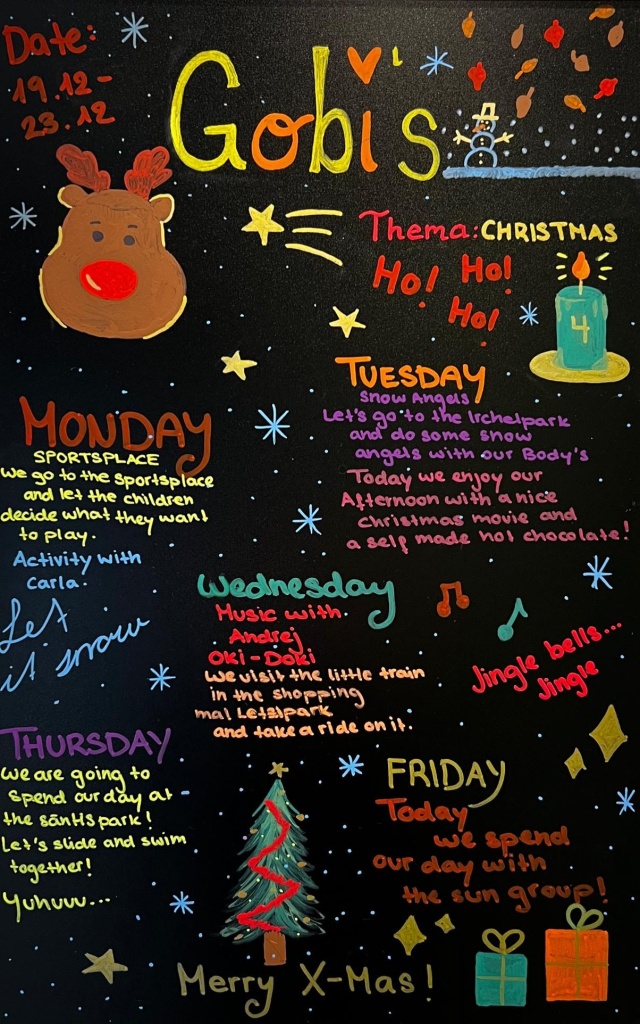 Date:
19.12-
23.12
Gobi's
Thema: CHRISTMAS
Ho! Ho!
Ho!
4
TUESDAY
Snow Angels
Let's go to the Irchelpark
and do some snow
angels with our Body's
Today we enjoy our
Afternoon with a nice
christmas movie and
a self made hot chocolate!
MONDAY
SPORTSPLACE
We go to the sportsplace
and let the children
decide what they want
to play.
Activity with
Carla.
Let
it snow
Wednesday
Music with
Andrej
Oki-Doki
We visit the little train
in the shopping
mal Letzipark
and take a ride on it.
Jingle bells...
Jingle
THURSDAY
We are going to
spend our day at
the säntispark!
Let's slide and swim
together!
Yuhuuu...
FRIDAY
Today
we spend
our day with
the sun group!
Merry X-Mas!